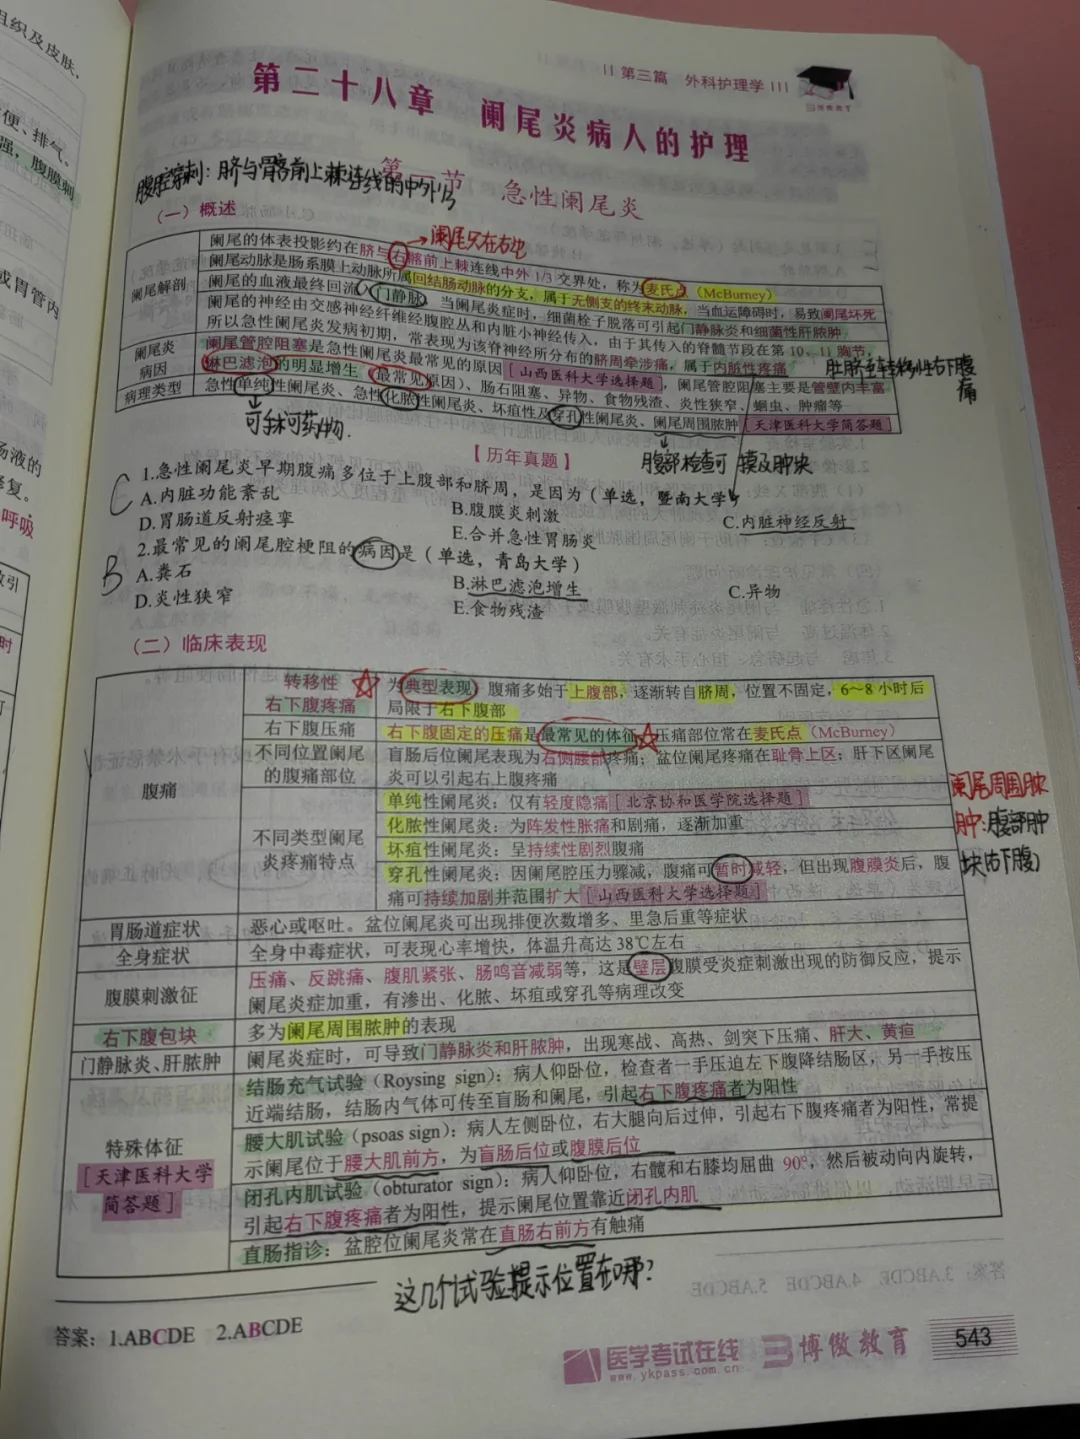 组织及皮肤,
便、排气、
强，腹膜刺
或胃管内
肠液的
修复。
呼吸
II 第三篇 外科护理学 III
博傲教育
第二十八章 阑尾炎病人的护理
腹腔穿刺：脐与髂前上棘连线的中外1/3
第一节 急性阑尾炎
（一）概述
→阑尾只在右边
阑尾解剖
阑尾的体表投影约在脐与右髂前上棘连线中外 1/3 交界处，称为麦氏点（McBurney）
阑尾动脉是肠系膜上动脉所属回结肠动脉的分支，属于无侧支的终末动脉，当血运障碍时，易致阑尾坏死
阑尾的血液最终回流入门静脉，当阑尾炎症时，细菌栓子脱落可引起门静脉炎和细菌性肝脓肿
阑尾的神经由交感神经纤维经腹腔丛和内脏小神经传入，由于其传入的脊髓节段在第 10、11 胸节，
所以急性阑尾炎发病初期，常表现为该脊神经所分布的脐周牵涉痛，属于内脏性疼痛
阑尾炎
病因
阑尾管腔阻塞是急性阑尾炎最常见的原因［山西医科大学选择题］，阑尾管腔阻塞主要是管壁内丰富
淋巴滤泡的明显增生（最常见原因）、肠石阻塞、异物、食物残渣、炎性狭窄、蛔虫、肿瘤等
病理类型
急性单纯性阑尾炎、急性化脓性阑尾炎、坏疽性及穿孔性阑尾炎、阑尾周围脓肿［天津医科大学简答题］
痛
可手术可药物.
腹部检查可 摸及肿块
【历年真题】
C
1.急性阑尾炎早期腹痛多位于上腹部和脐周，是因为（单选，暨南大学）
A.内脏功能紊乱
B.腹膜炎刺激
C.内脏神经反射
D.胃肠道反射痉挛
E.合并急性胃肠炎
B
2.最常见的阑尾腔梗阻的病因是（单选，青岛大学）
A.粪石
B.淋巴滤泡增生
C.异物
D.炎性狭窄
E.食物残渣
（二）临床表现
腹痛
转移性
右下腹疼痛
为典型表现，腹痛多始于上腹部，逐渐转自脐周，位置不固定，6～8 小时后
局限于右下腹部
右下腹压痛
右下腹固定的压痛是最常见的体征，压痛部位常在麦氏点（McBurney）
不同位置阑尾
的腹痛部位
盲肠后位阑尾表现为右侧腰部疼痛；盆位阑尾疼痛在耻骨上区；肝下区阑尾
炎可以引起右上腹疼痛
不同类型阑尾
炎疼痛特点
单纯性阑尾炎：仅有轻度隐痛［北京协和医学院选择题］
化脓性阑尾炎：为阵发性胀痛和剧痛，逐渐加重
坏疽性阑尾炎：呈持续性剧烈腹痛
穿孔性阑尾炎：因阑尾腔压力骤减，腹痛可暂时减轻，但出现腹膜炎后，腹
痛可持续加剧并范围扩大［山西医科大学选择题］
阑尾周围脓
肿：腹部肿
块（右下腹）
胃肠道症状
恶心或呕吐。盆位阑尾炎可出现排便次数增多、里急后重等症状
全身症状
全身中毒症状，可表现心率增快，体温升高达 38℃左右
腹膜刺激征
压痛、反跳痛、腹肌紧张、肠鸣音减弱等，这是壁层腹膜受炎症刺激出现的防御反应，提示
阑尾炎症加重，有渗出、化脓、坏疽或穿孔等病理改变
右下腹包块
多为阑尾周围脓肿的表现
门静脉炎、肝脓肿
阑尾炎症时，可导致门静脉炎和肝脓肿，出现寒战、高热、剑突下压痛、肝大、黄疸
特殊体征
［天津医科大学
简答题］
结肠充气试验（Roysing sign）：病人仰卧位，检查者一手压迫左下腹降结肠区，另一手按压
近端结肠，结肠内气体可传至盲肠和阑尾，引起右下腹疼痛者为阳性
腰大肌试验（psoas sign）：病人左侧卧位，右大腿向后过伸，引起右下腹疼痛者为阳性，常提
示阑尾位于腰大肌前方，为盲肠后位或腹膜后位
闭孔内肌试验（obturator sign）：病人仰卧位，右髋和右膝均屈曲 90°，然后被动向内旋转，
引起右下腹疼痛者为阳性，提示阑尾位置靠近闭孔内肌
直肠指诊：盆腔位阑尾炎常在直肠右前方有触痛
这几个试验提示位置在哪?
答案：1.ABCDE 2.ABCDE
医学考试在线
www.ykpass.com.cn
博傲教育
543